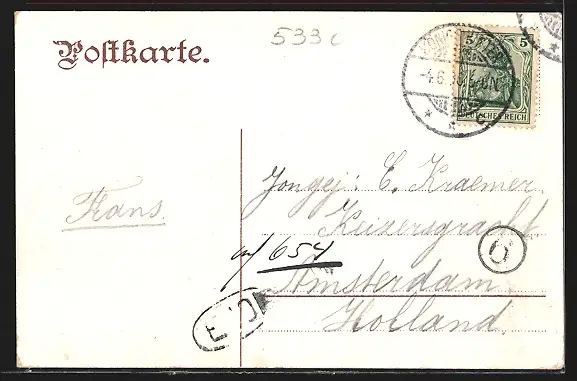 Postkarte.
533c
5 5
DEUTSCHES REICH
Jongej: C. Kraemer
Keizersgracht.
654
Amsterdam
Holland.
Frans.
6